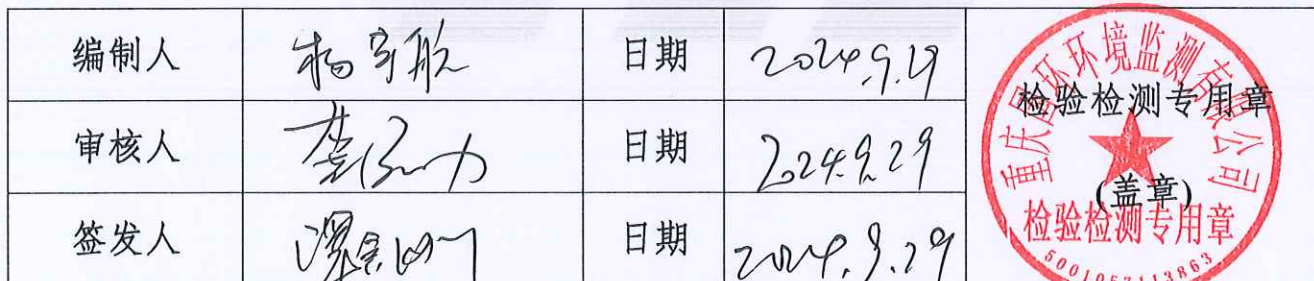 编制人 杨宇航 日期 2024.9.29
检验检测专用章
审核人 日期 2024.9.29
(盖章)
签发人 日期 2024.9.29
重庆国环环境监测有限公司
检验检测专用章
5001052113863